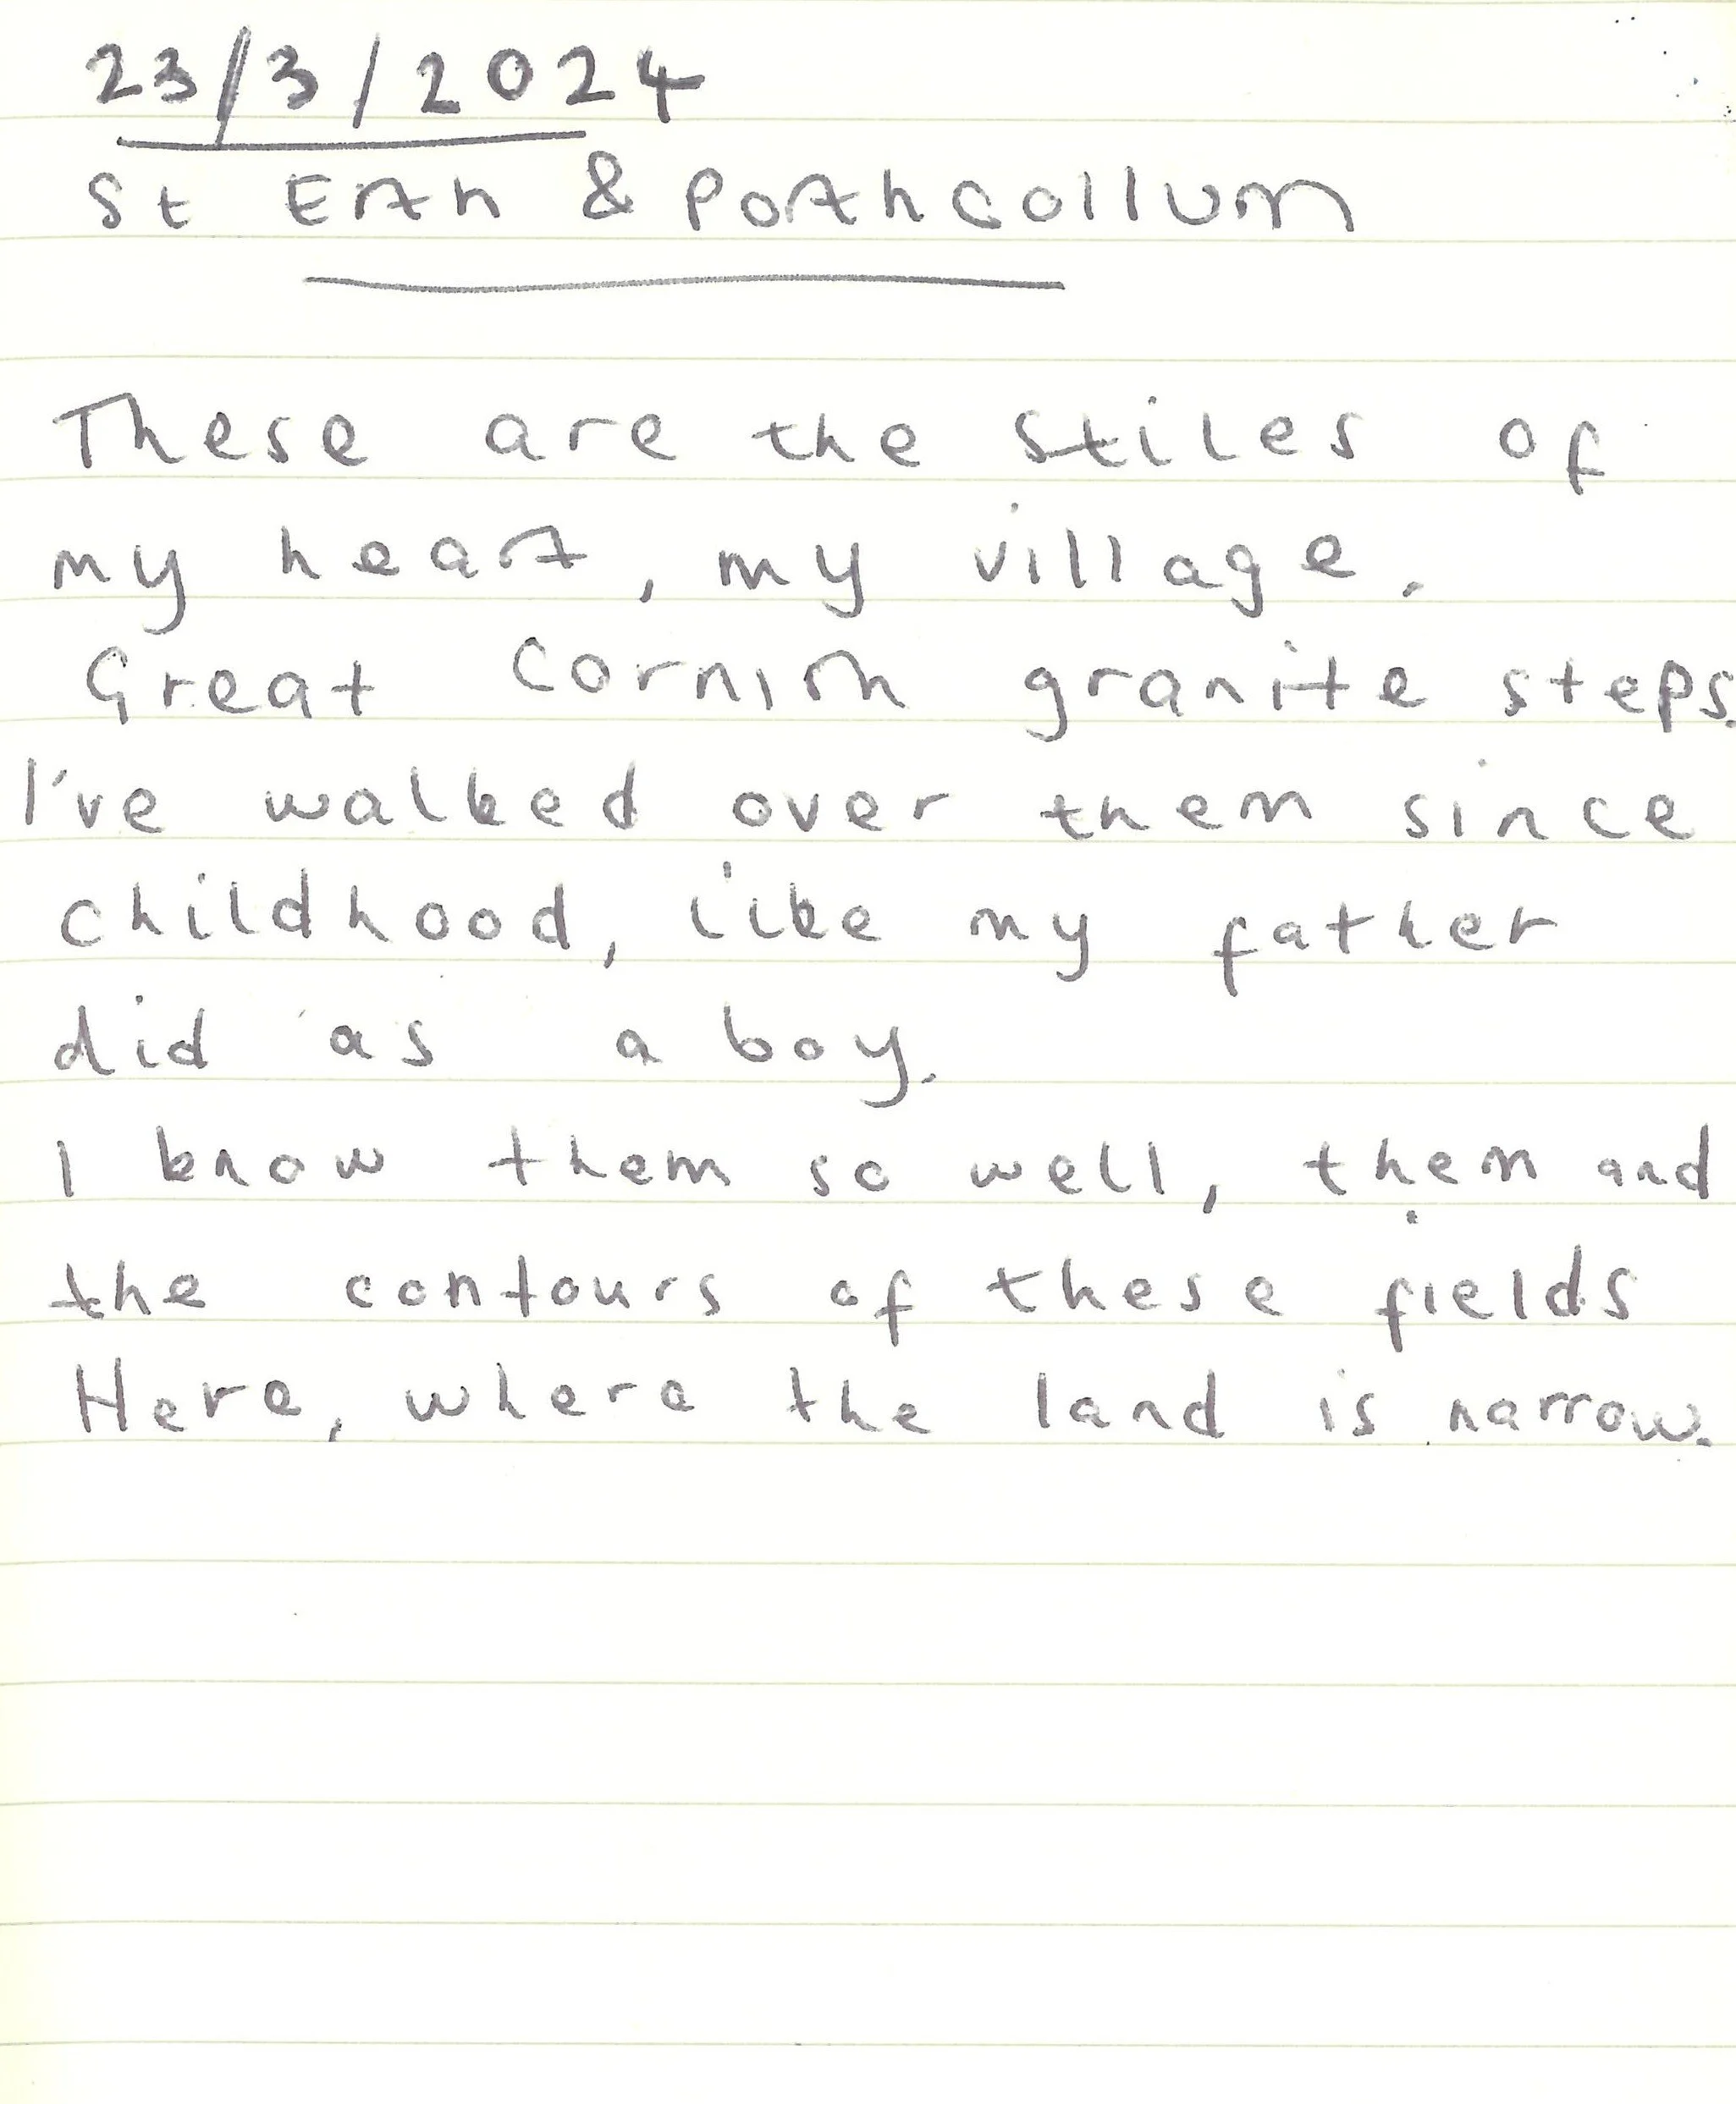 23/3/2024
St Erth & Porthcollum
These are the stiles of
my heart, my village.
Great Cornish granite steps.
I've walked over them since
childhood, like my father
did as a boy.
I know them so well, them and
the contours of these fields
Here, where the land is narrow.